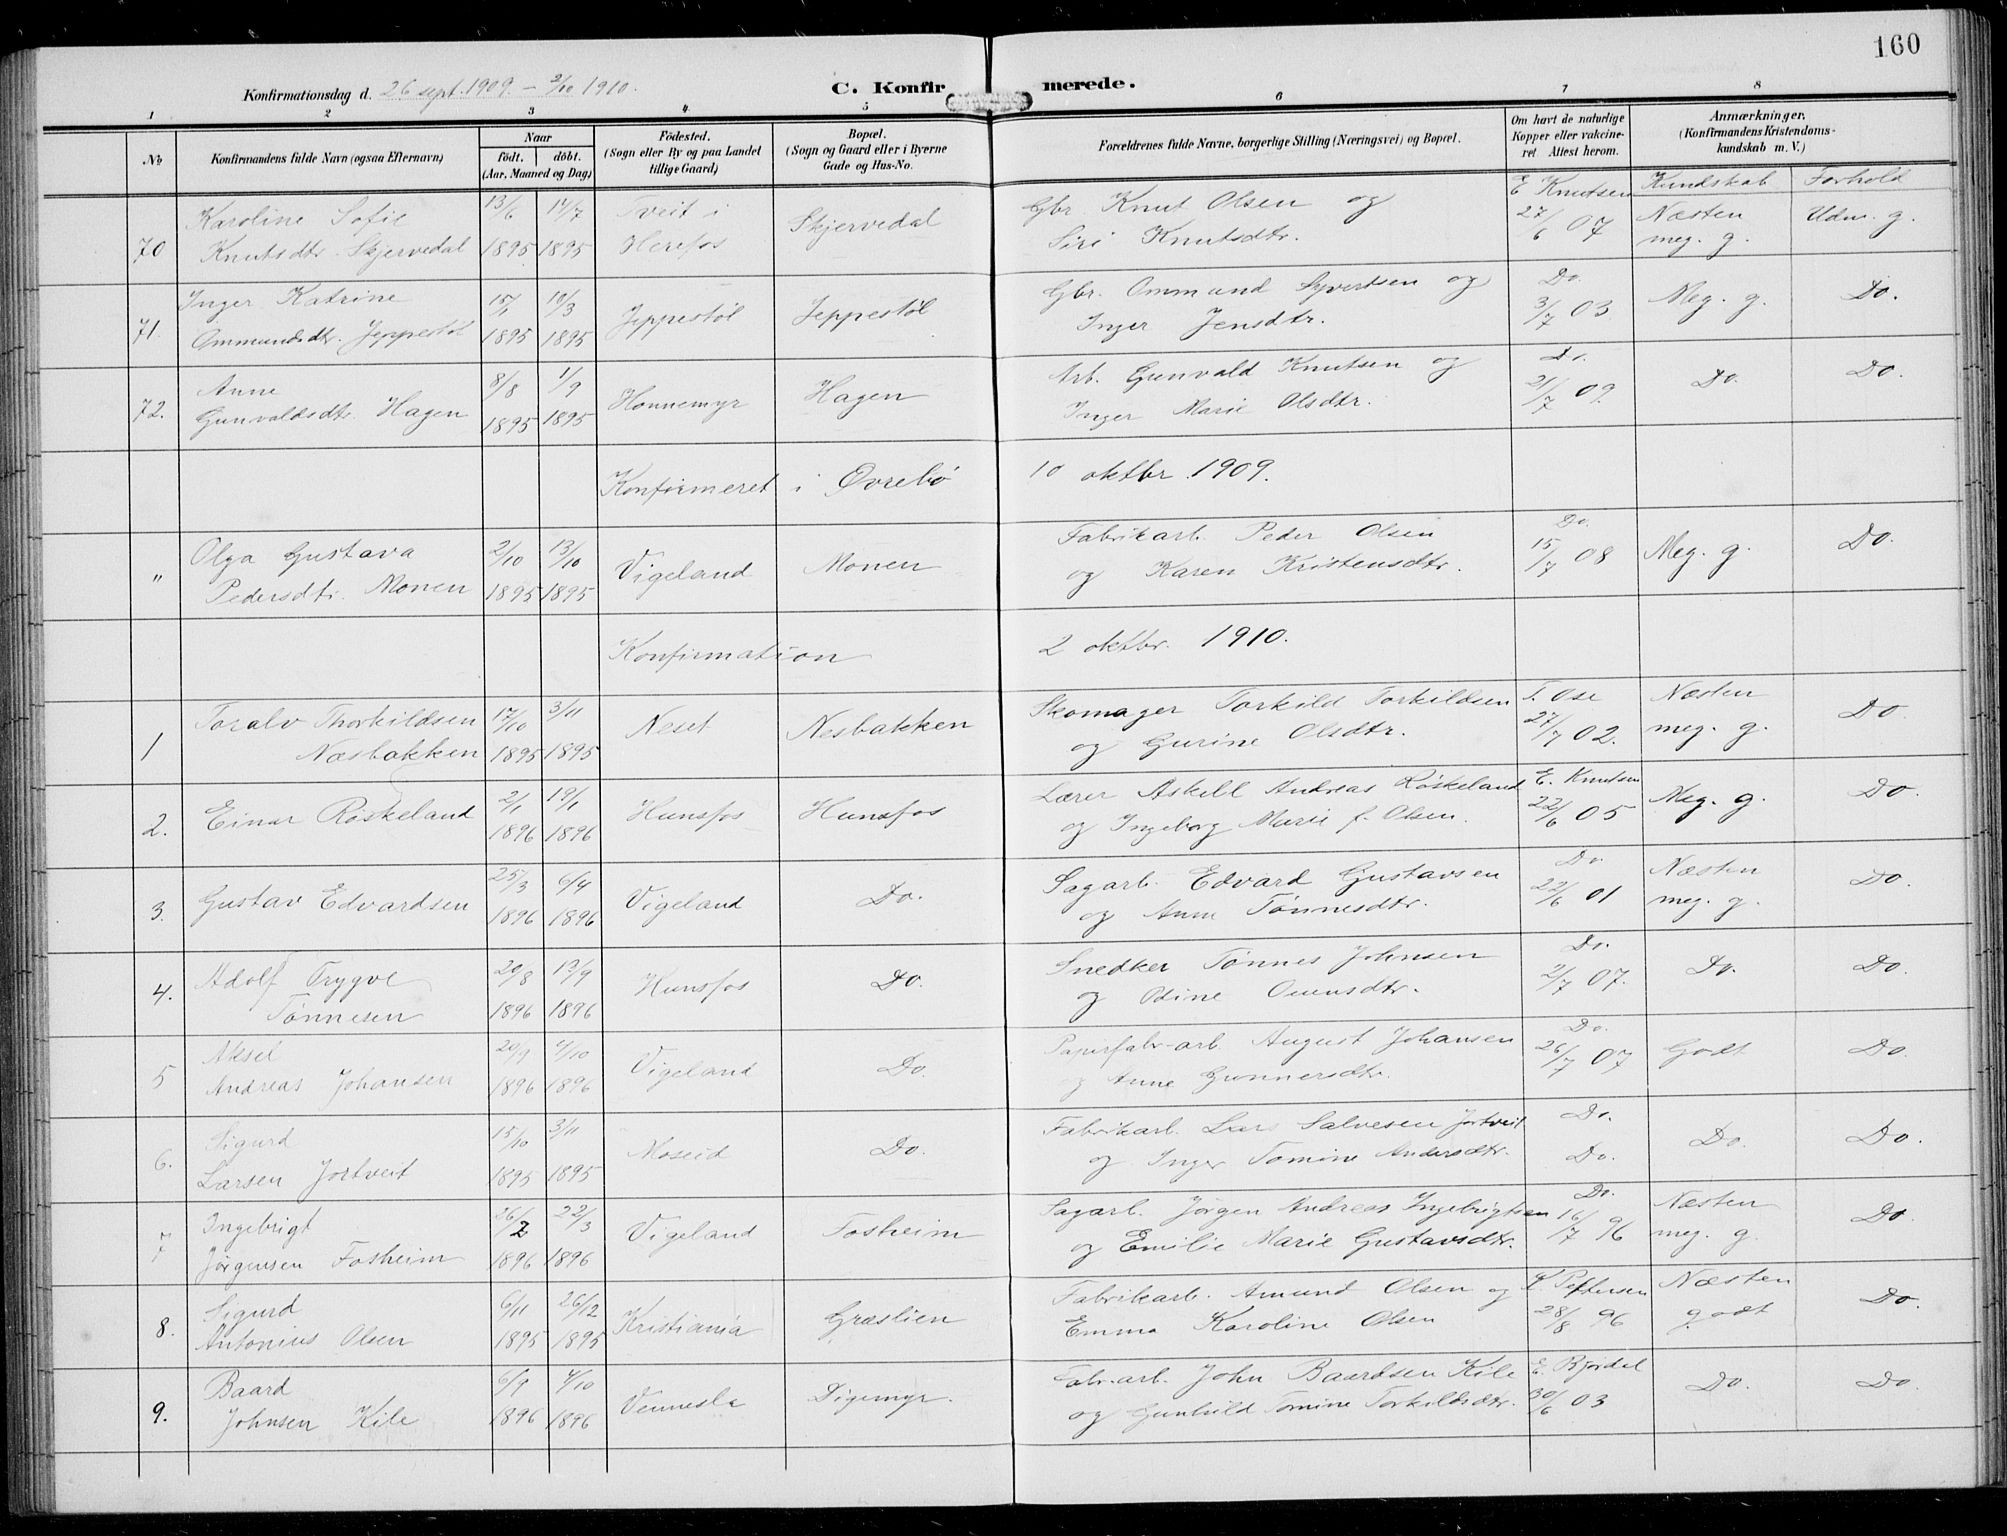 160
Konfirmationsdag d. 26 sept. 1909. – 2/10 1910.
C. Konfirmerede.
1 2 3 4 5 6 7 8
№
Konfirmandens fulde Navn (ogsaa Efternavn)
Naar
født. døbt.
(Aar, Maaned og Dag)
Fødested.
(Sogn eller By og paa Landet
tillige Gaard)
Bopæl.
(Sogn og Gaard eller i Byerne
Gade og Hus-No.
Forældrenes fulde Navne, borgerlige Stilling (Næringsvei) og Bopæl.
Om havt de naturlige
Kopper eller vakcine-
ret. Attest herom.
Anmærkninger,
(Konfirmandens Kristendoms-
kundskab m. V.)
Kundskab Forhold
Karoline Sofie 13/6 14/7 Tveit i Skjervedal Gbr. Knut Olsen og E Knutsen 27/6 07 Næsten Udm. g.
70 Knutsdtr. Skjervedal 1895 1895 Herefos Siri Knutsdtr. meg. g.
Inger Katrine 15/1 10/3 Jeppestøl Jeppestøl Gbr. Ommund Syvertsen og Do. Meg. g. Do.
71. Ommundsdtr. Jeppestøl 1895 1895 Inger Jensdtr. 3/7 03
Anne 8/8 1/9 Honnemyr Hagen Arb. Gunvald Knutsen og Do. Do. Do.
72. Gunvaldsdtr. Hagen 1895 1895 Inger Marie Olsdtr. 21/7 09.
Konfirmeret i Øvrebø 10 oktbr. 1909.
Olga Gustava 2/10 13/10 Vigeland Monen Fabrikarb. Peder Olsen Do. Meg. g. Do.
" Pedersdtr. Monen 1895 1895 og Karen Kristensdtr. 15/7 08
Konfirmation 2 oktbr. 1910.
Toralv Thorkildsen 17/10 3/11 Neset Nesbakken Skomager Torkild Torkildsen T. Ose Næsten Do
1 Næsbakken 1895 1895 og Gurine Olsdtr. 27/7 02. meg. g.
2. Einar Røskeland 2/1 19/1 Hunsfos Hunsfos Lærer Askill Andreas Røskeland E. Knutsen Meg. g. Do.
1896 1896 og Ingeborg Marie f. Olsen. 22/6 05
3. Gustav Edvardsen 25/3 6/4 Vigeland Do. Sagarb. Edvard Gustavsen Do. Næsten Do.
1896 1896 og Anne Tønnesdtr. 22/6 01 meg. g.
Adolf Trygve 20/8 13/9 Hunsfos Do. Snedker Tønnes Johnsen Do. Do. Do.
4. Tønnesen 1896 1896 og Odine Ouensdtr. 2/7 07.
Aksel 20/9 4/10 Vigeland Do. Papirfabr-arb. August Johansen Do. Godt Do.
5 Andreas Johansen 1896 1896 og Anne Gunnersdtr. 26/7 07
Sigurd 15/10 3/11 Moseid Do. Fabrikarb. Lars Salvesen Jortveit Do. Do. Do.
6. Larsen Jortveit 1895 1895 og Inger Tomine Andersdtr. Do.
Ingebrigt 26/2 22/3 Vigeland Fosheim Sagarb. Jørgen Andreas Ingebrigtsen Do. Næsten Do.
7 Jørgensen Fosheim 1896 1896 og Emilie Marie Gustavsdtr. 16/7 96 meg. g.
Sigurd 6/11 26/12 Kristiania Græslien Fabrikarb. Amund Olsen og Pettersen Næsten Do.
8. Antonius Olsen 1895 1895 Emma Karoline Olsen 28/8 96 godt
Baard 6/9 4/10 Vennesla Digemyr. Fabr-arb. John Baardsen Kile E. Bjørdal Do. Do.
9. Johnsen Kile 1896 1896 og Gunhild Tomine Torkildsdtr. 30/6 03